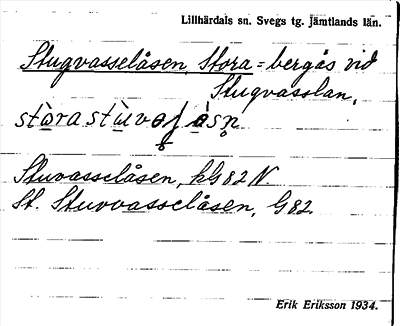 Lillhärdals sn. Svegs tg. Jämtlands län.
Stugvasselåsen, Stora = bergås vid
Stugvasslan,
Stuvasselåsen, hG82 N.
St. Stuvvasselåsen, G82.
Erik Eriksson 1934.